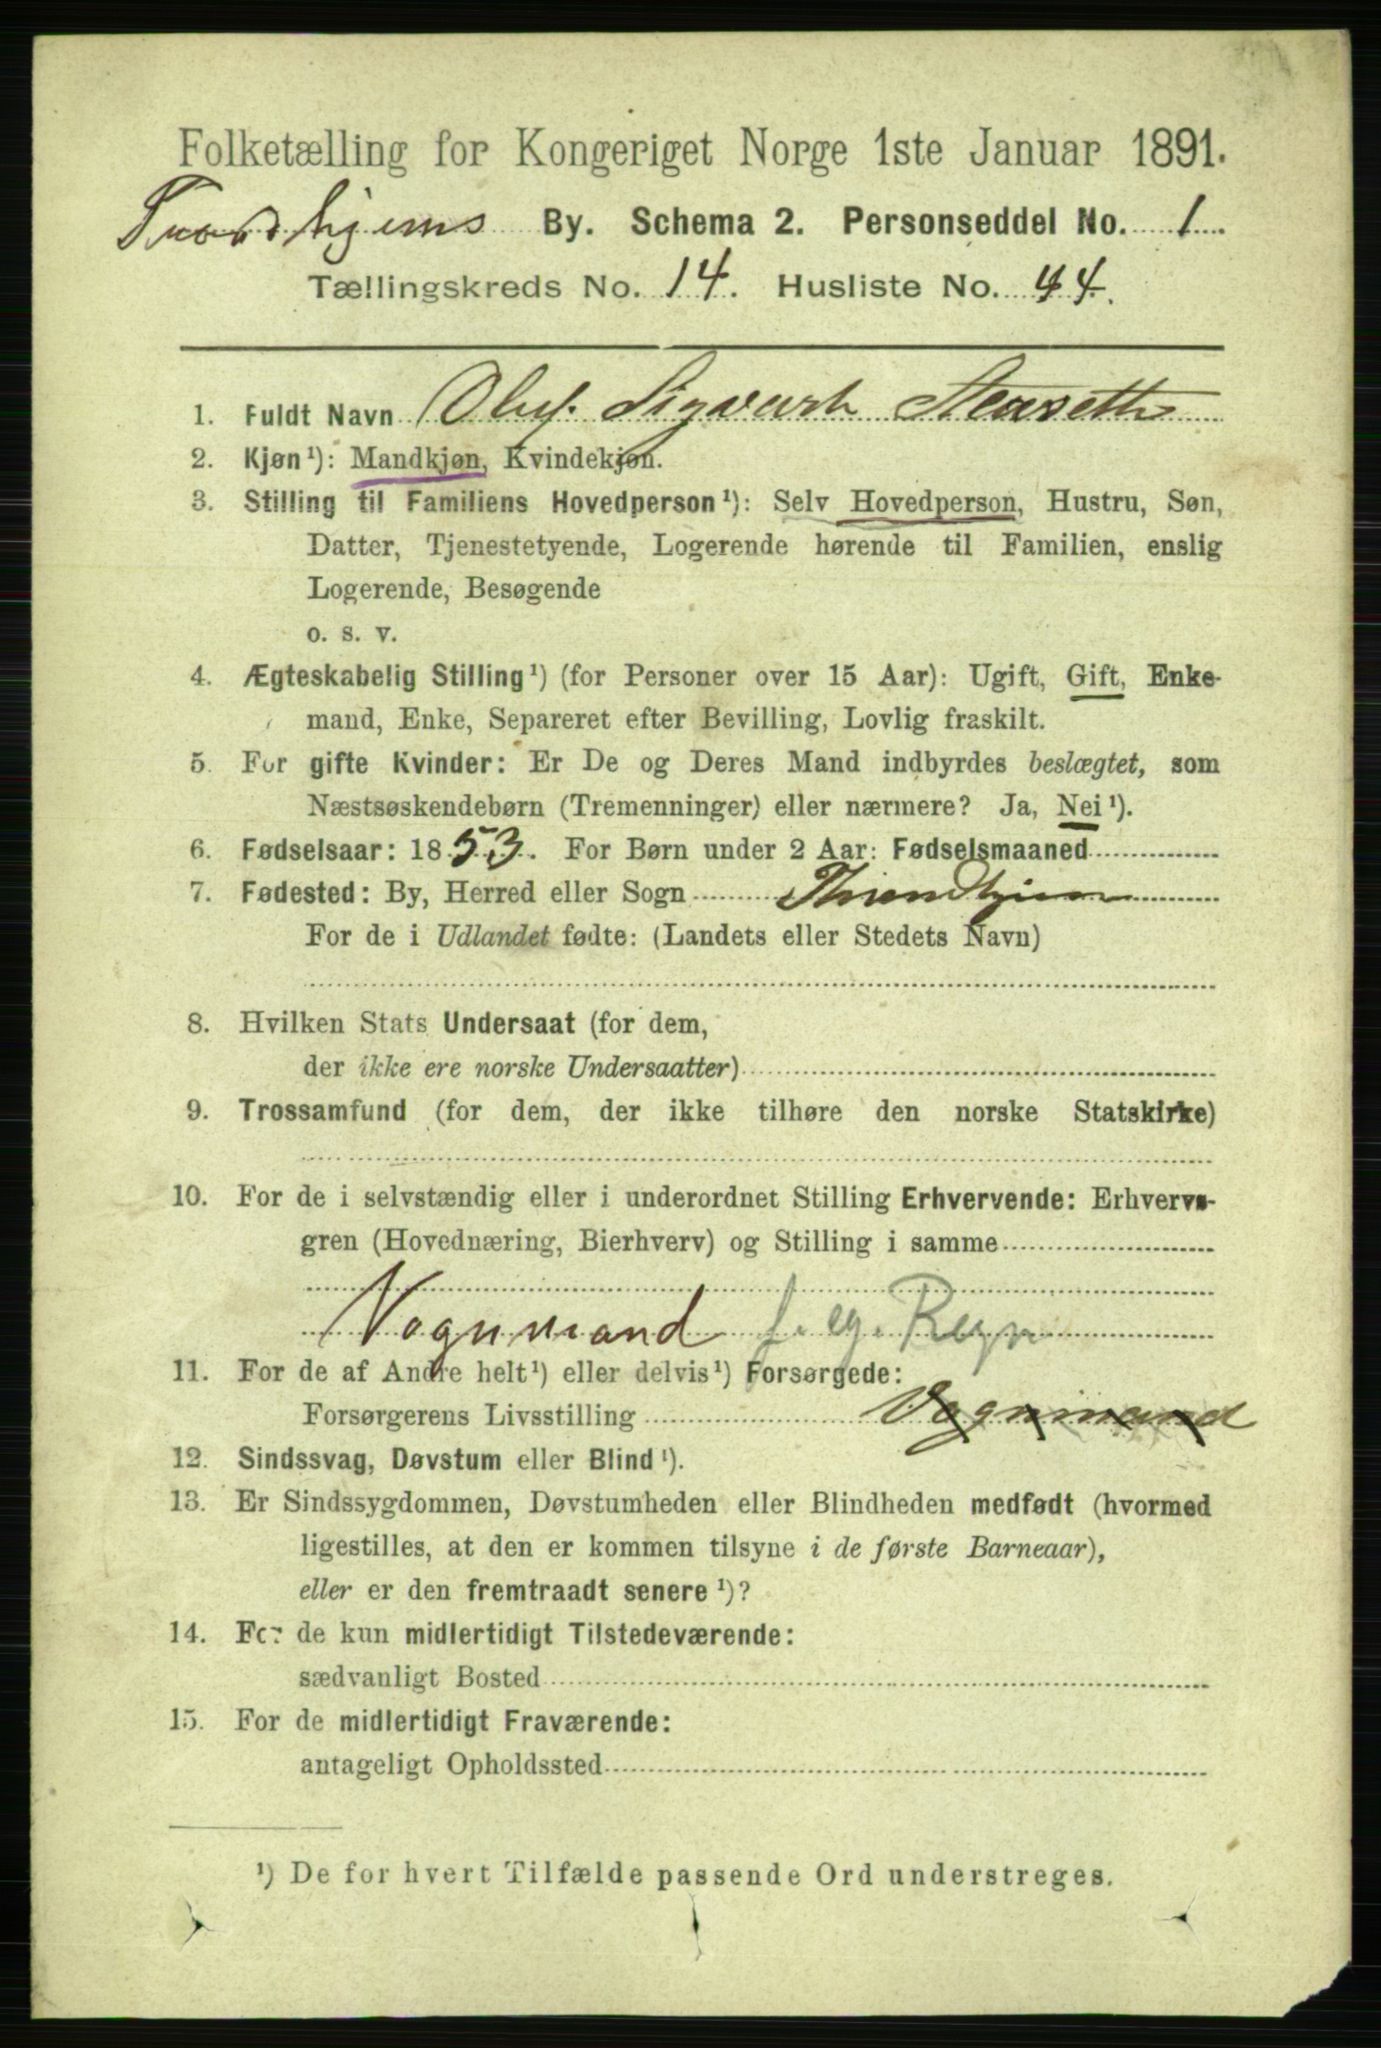 Folketælling for Kongeriget Norge 1ste Januar 1891.
Trondhjems By. Schema 2. Personseddel No. 1
Tællingskreds No. 14. Husliste No. 44.
1. Fuldt Navn Oluf Sigvart Stenseth
2. Kjøn¹): Mandkjøn, Kvindekjøn.
3. Stilling til Familiens Hovedperson¹): Selv Hovedperson, Hustru, Søn,
Datter, Tjenestetyende, Logerende hørende til Familien, enslig
Logerende, Besøgende
o. s. v.
4. Ægteskabelig Stilling¹) (for Personer over 15 Aar): Ugift, Gift, Enke-
mand, Enke, Separeret efter Bevilling, Lovlig fraskilt.
5. For gifte Kvinder: Er De og Deres Mand indbyrdes beslægtet, som
Næstsøskendebørn (Tremenninger) eller nærmere? Ja, Nei¹).
6. Fødselsaar: 1853. For Børn under 2 Aar: Fødselsmaaned
7. Fødested: By, Herred eller Sogn Throndhjem
For de i Udlandet fødte: (Landets eller Stedets Navn)
8. Hvilken Stats Undersaat (for dem,
der ikke ere norske Undersaatter)
9. Trossamfund (for dem, der ikke tilhøre den norske Statskirke)
10. For de i selvstændig eller i underordnet Stilling Erhvervende: Erhvervs-
gren (Hovednæring, Bierhverv) og Stilling i samme
Vognmand f. eg. Regn
11. For de af Andre helt¹) eller delvis¹) Forsørgede:
Forsørgerens Livsstilling Vognmand
12. Sindssvag, Døvstum eller Blind¹).
13. Er Sindssygdommen, Døvstumheden eller Blindheden medfødt (hvormed
ligestilles, at den er kommen tilsyne i de første Barneaar),
eller er den fremtraadt senere¹)?
14. For de kun midlertidigt Tilstedeværende:
sædvanligt Bosted
15. For de midlertidigt Fraværende:
antageligt Opholdssted
¹) De for hvert Tilfælde passende Ord understreges.